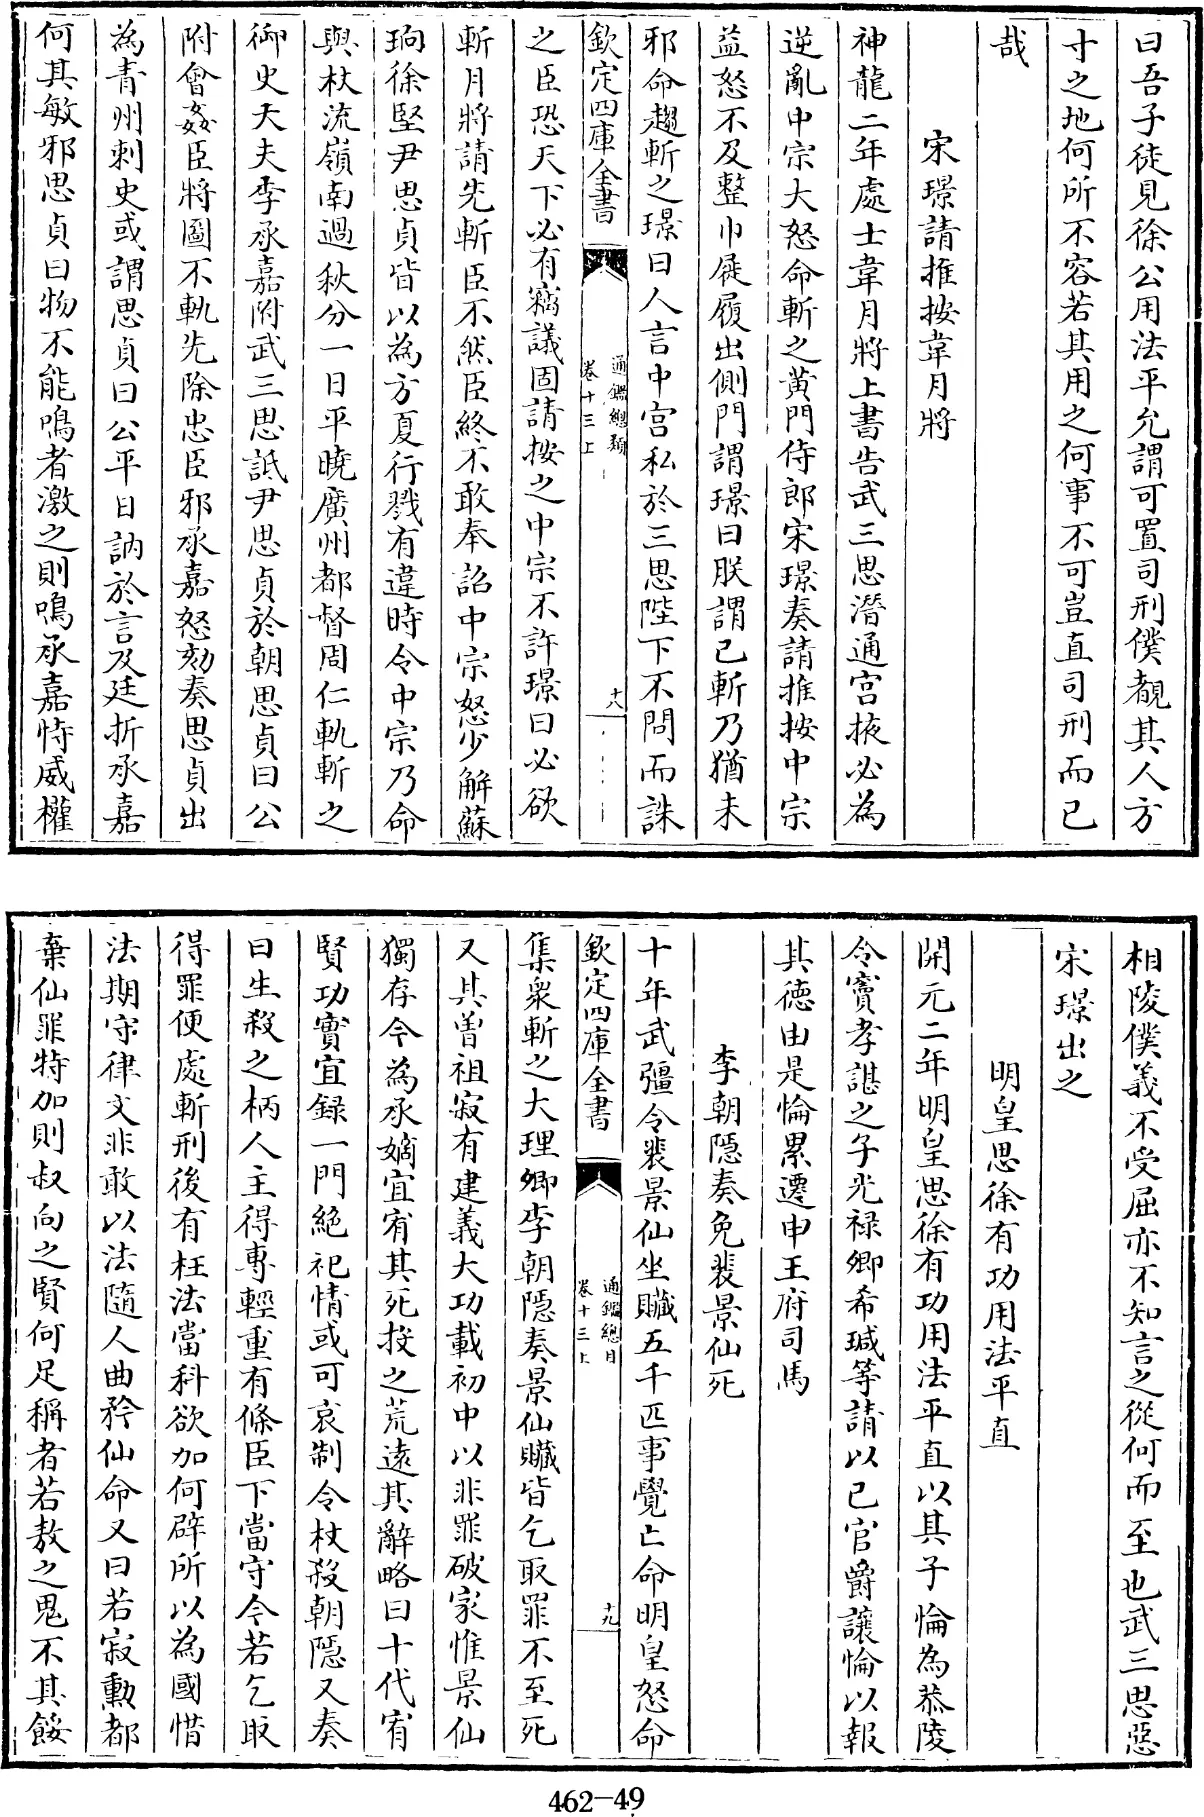 曰吾子徒見徐公用法平允謂可置司刑僕覩其人方
寸之地何所不容若其用之何事不可豈直司刑而已
哉
宋璟請推按韋月將
神龍二年處士韋月將上書告武三思潛通宫掖必為
逆亂中宗大怒命斬之黄門侍郎宋璟奏請推按中宗
益怒不及整巾屣履出側門謂璟曰朕謂已斬乃猶未
邪命趨斬之璟曰人言中宫私於三思陛下不問而誅
欽定四庫全書
通鑑總類
卷十三上
十八
之臣恐天下必有竊議固請按之中宗不許璟曰必欲
斬月將請先斬臣不然臣終不敢奉詔中宗怒少解蘇
珦徐堅尹思貞皆以為方夏行戮有違時令中宗乃命
與杖流嶺南過秋分一日平曉廣州都督周仁軌斬之
御史大夫李承嘉附武三思詆尹思貞於朝思貞曰公
附會姦臣將圖不軌先除忠臣邪承嘉怒劾奏思貞出
為青州刺史或謂思貞曰公平日訥於言及廷折承嘉
何其敏邪思貞曰物不能鳴者激之則鳴承嘉恃威權
相陵僕義不受屈亦不知言之從何而至也武三思惡
宋璟出之
明皇思徐有功用法平直
開元二年明皇思徐有功用法平直以其子惀為恭陵
令竇孝諶之子光禄卿希瑊等請以已官爵讓惀以報
其德由是惀累遷申王府司馬
李朝隱奏免裴景仙死
十年武彊令裴景仙坐贓五千匹事覺亡命明皇怒命
欽定四庫全書
通鑑總目
卷十三上
十九
集衆斬之大理卿李朝隱奏景仙贓皆乞取罪不至死
又其曽祖寂有建義大功載初中以非罪破家惟景仙
獨存今為承嫡宜宥其死投之荒逺其辭略曰十代宥
賢功實宜録一門絶祀情或可哀制令杖殺朝隱又奏
曰生殺之柄人主得專輕重有條臣下當守今若乞取
得罪便處斬刑後有枉法當科欲加何辟所以為國惜
法期守律文非敢以法隨人曲矜仙命又曰若寂勳都
棄仙罪特加則叔向之賢何足稱者若敖之鬼不其餒
462-49